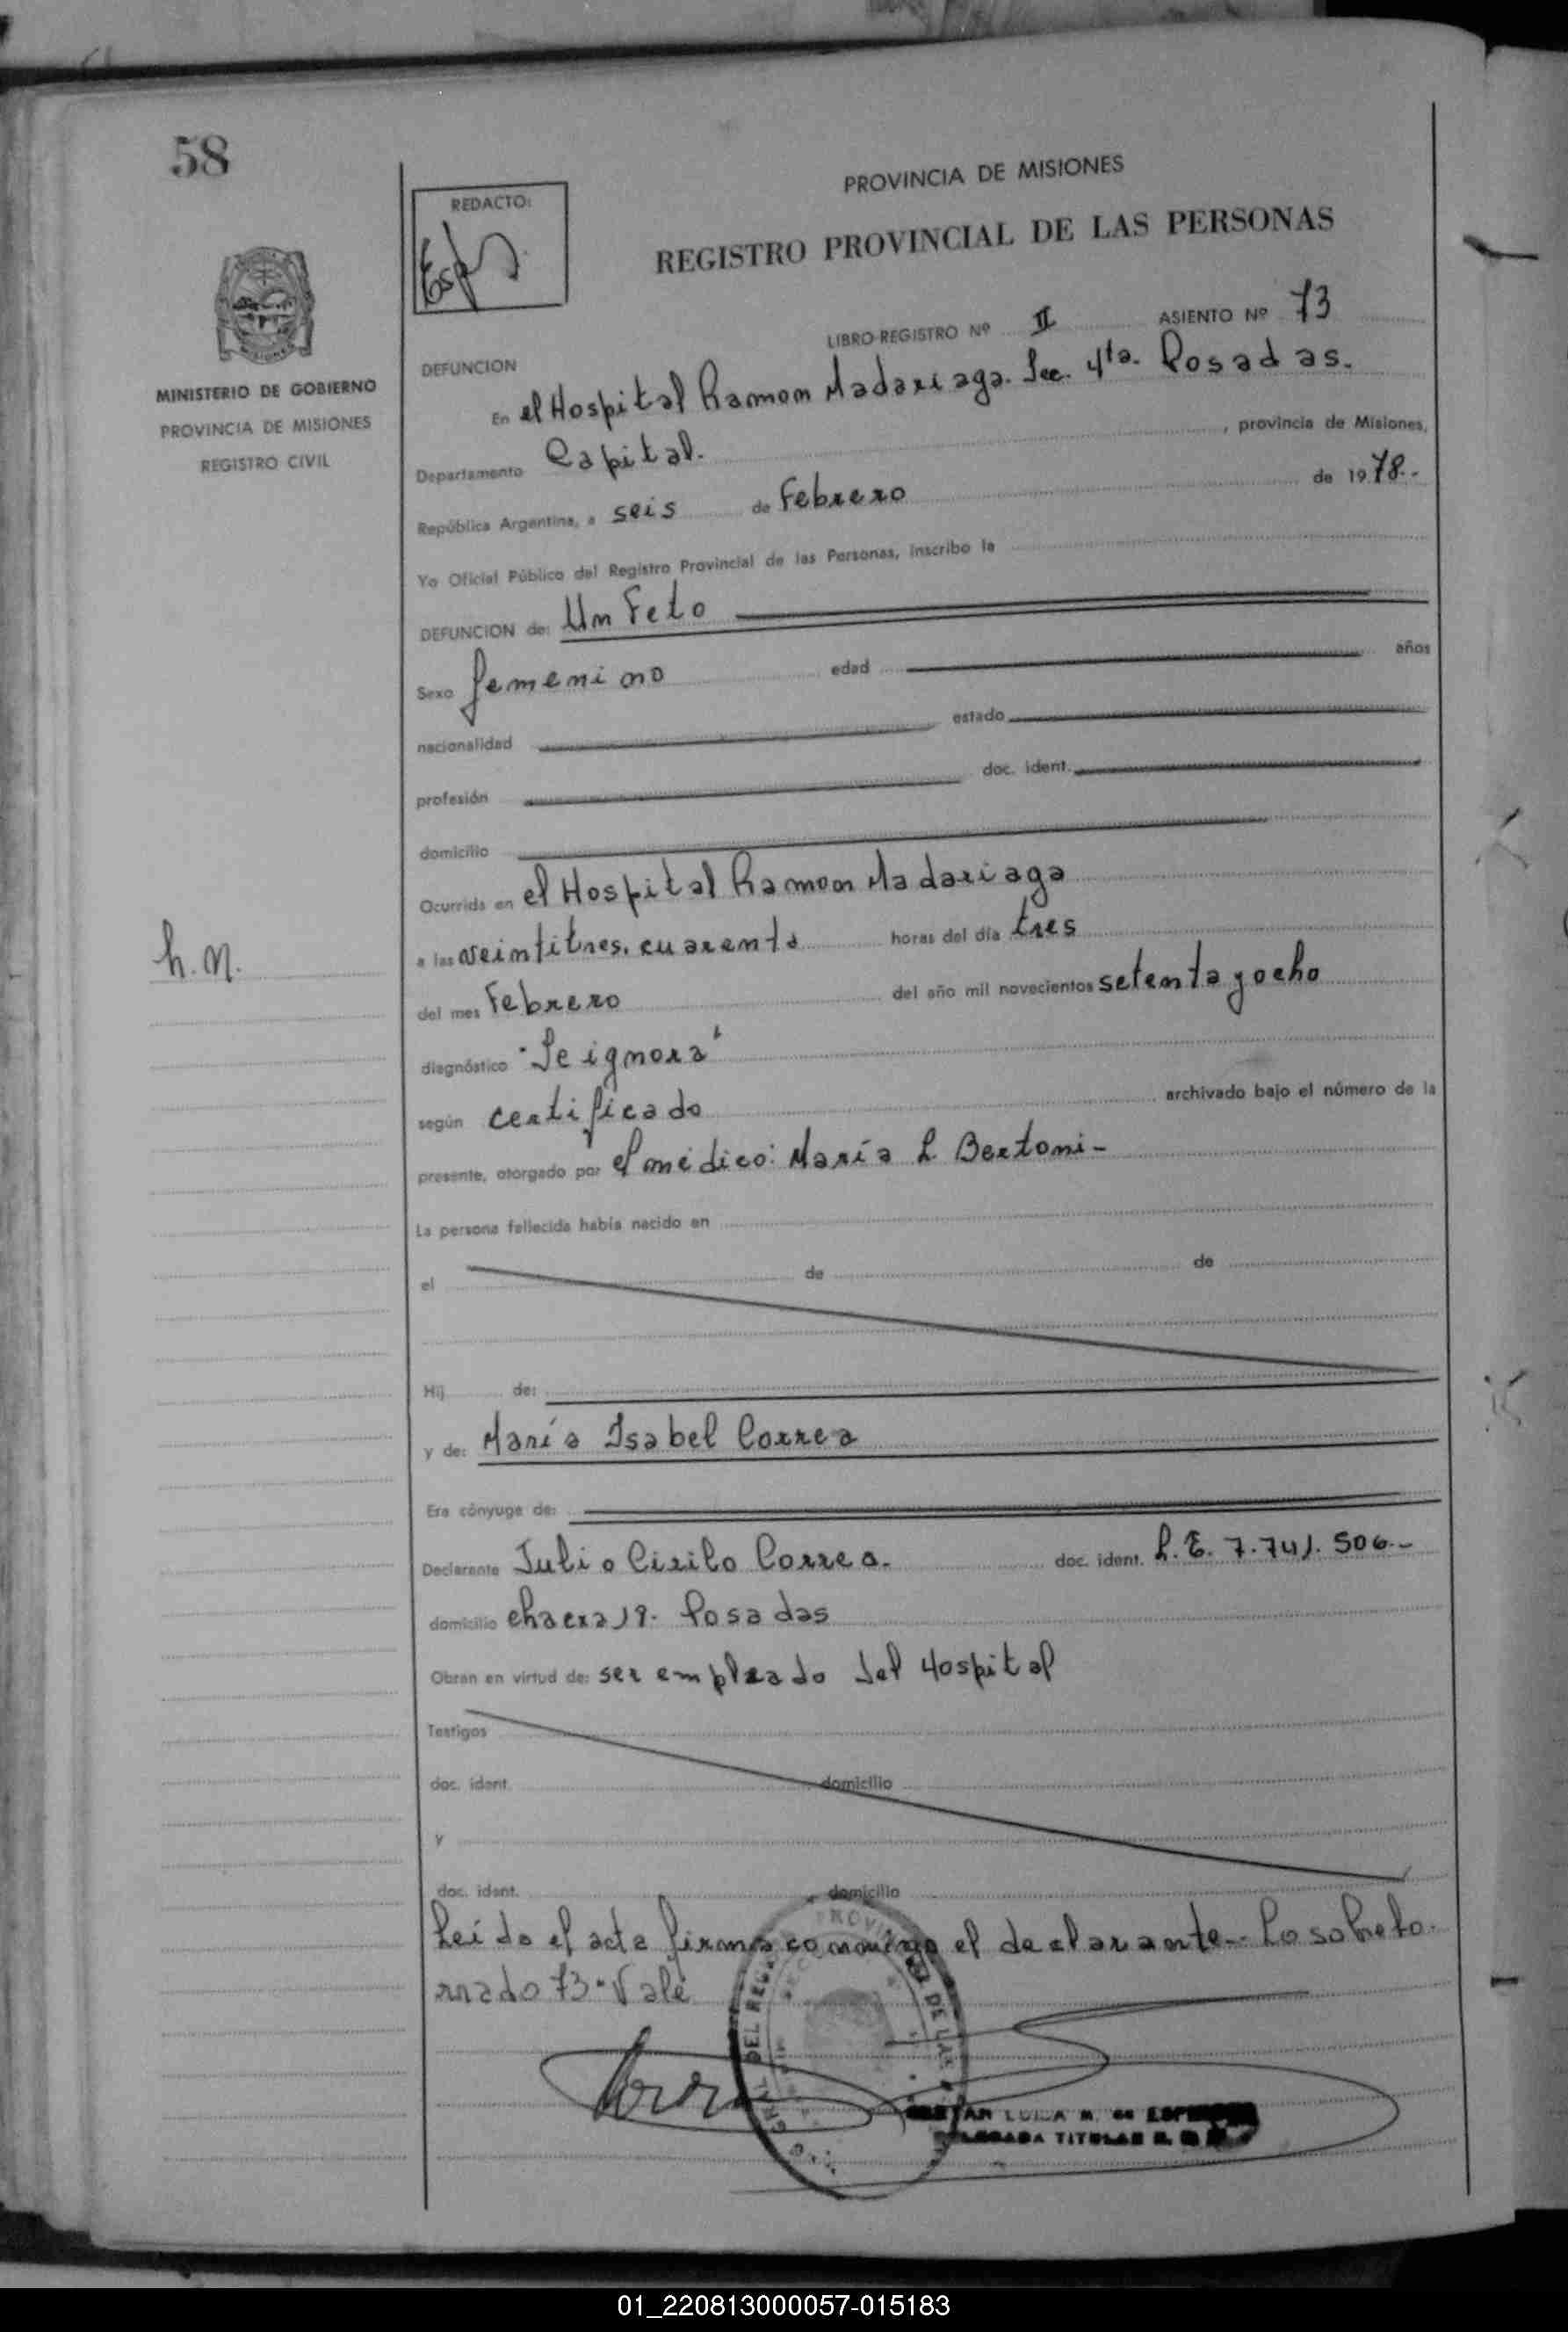 58
PROVINCIA DE MISIONES
REDACTO:
REGISTRO PROVINCIAL DE LAS PERSONAS
LIBRO-REGISTRO Nº II ASIENTO Nº 73
MISIONES
MINISTERIO DE GOBIERNO
PROVINCIA DE MISIONES
REGISTRO CIVIL
DEFUNCION
En el Hospital Ramon Madariaga. Sec. 4ta. Posadas.
Departamento Capital. , provincia de Misiones,
República Argentina, a seis de Febrero de 1978.-
Yo Oficial Público del Registro Provincial de las Personas, inscribo la
DEFUNCION de: Un Feto
Sexo femenino edad años
nacionalidad estado
profesión doc. ident.
domicilio
Ocurrida en el Hospital Ramon Madariaga
h.n.
a las veintitres, cuarenta horas del día tres
del mes Febrero del año mil novecientos setenta y ocho
diagnóstico "Se ignora"
según certificado archivado bajo el número de la
presente, otorgado por el médico: María L. Bertoni-
La persona fallecida había nacido en
el de de
Hij de:
y de: María Isabel Correa
Era cónyuge de:
Declarante Julio Cirilo Correa. doc. ident. L.E. 7.741.506.-
domicilio chacra 19. Posadas
Obran en virtud de: ser empleado del Hospital
Testigos
doc. ident. domicilio
y
doc. ident. domicilio
Leído el acta firma conmigo el declarante.- Lo sobreto
rrado 73-Vale
DEL REG PROVIN DE LAS
LUISA M. de
TITULAR
01_220813000057-015183